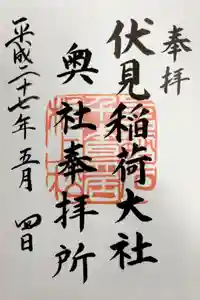 奉拝
伏見稲荷大社
奥社奉拝所
平成二十七年 五月 四日